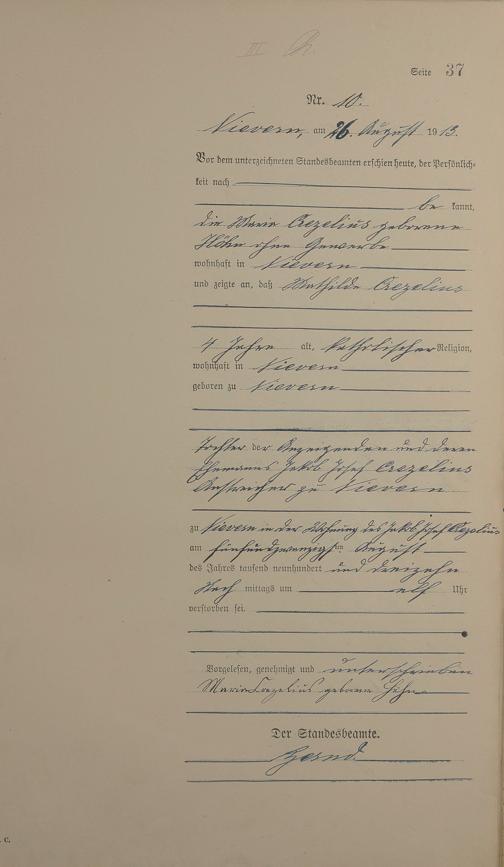 Seite 37
Nr. 10.
Nievern, am 26. August 1913.
Vor dem unterzeichneten Standesbeamten erschien heute, der Persönlich-
keit nach
be kannt,
die Maria Crezelius geborene
Höhn ohne Gewerbe
wohnhaft in Nievern
und zeigte an, daß Mathilde Crezelius
4 Jahre alt, katholischer Religion,
wohnhaft in Nievern
geboren zu Nievern
Tochter der Anzeigenden und deren
Ehemanns Jakob Josef Crezelius
Anstreicher zu Nievern
zu Nievern in der Wohnung des Jakob Josef Crezelius
am fünfundzwanzigsten August
des Jahres tausend neunhundert und dreizehn
Nach mittags um elf Uhr
verstorben sei.
Vorgelesen, genehmigt und unterschrieben
Maria Crezelius geborene Höhn
Der Standesbeamte.
C.